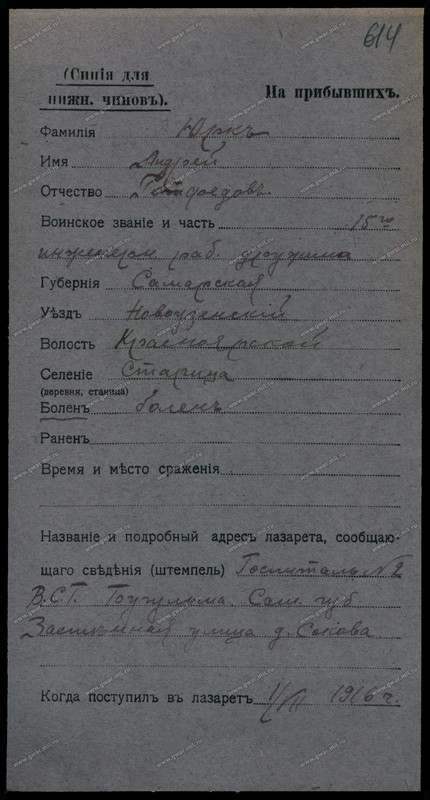 614
(Синія для
нижн. чиновъ).
На прибывшихъ.
Фамилія Юркъ
Имя Андрей
Отчество Готфредовъ
Воинское званіе и часть 15го
инженерн. раб. дружина
Губернія Самарская
Уѣздъ Новоузенскій
Волость Красноярской
Селеніе Старица
(деревня, станица)
Боленъ боленъ
Раненъ
Время и мѣсто сраженія
Названіе и подробный адресъ лазарета, сообщаю-
щаго свѣдѣнія (штемпель) Госпиталь №2
В.С.Г. Сам. губ
улица д.
Когда поступилъ въ лазаретъ 1/VII 1916 г.
www.gwar.mil.ru